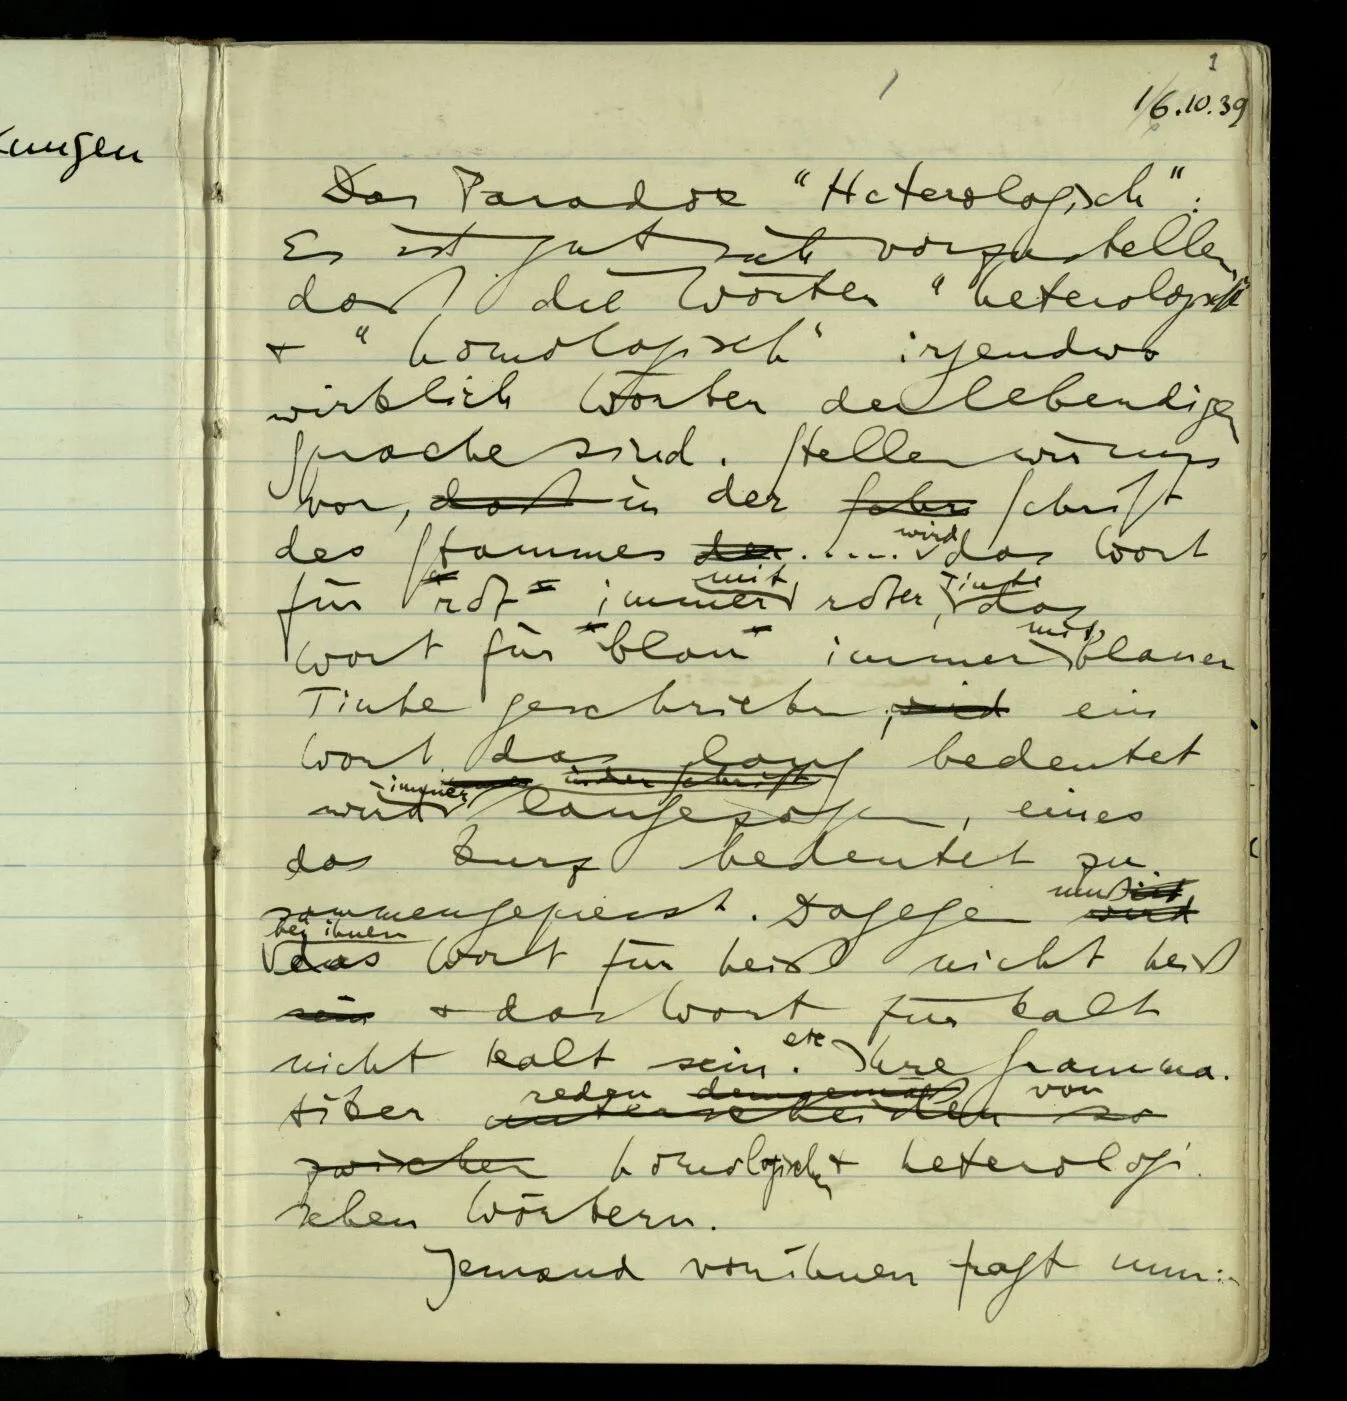 kungen
1
16.10.39
Das Paradox "Heterologisch":
Es ist gut sich vorzustellen,
daß die Wörter "heterologisch"
+ "homologisch" irgendwo
wirklich Wörter der lebendigen
Sprache sind. Stellen wir uns
vor, daß in der Schr Schrift
des Stammes der..... wird das Wort
für "rot" immer mit roter Tinte, das
Wort für "blau" immer mit blauer
Tinte geschrieben, wird ein
Wort das lang bedeutet
immer in der Schrift
wird langezogen, eines
das kurz bedeutet zu
sammengepresst. Dagegen muß ist wird
bei ihnen
das Wort für heiß nicht heiß
sein + das Wort für kalt
nicht kalt sein. etc Ihre Gramma.
reden demgemäß von
tiker unterscheiden so
zwischen homologischen + heterologi.
schen Wörtern.
Jemand von ihnen fragt nun: